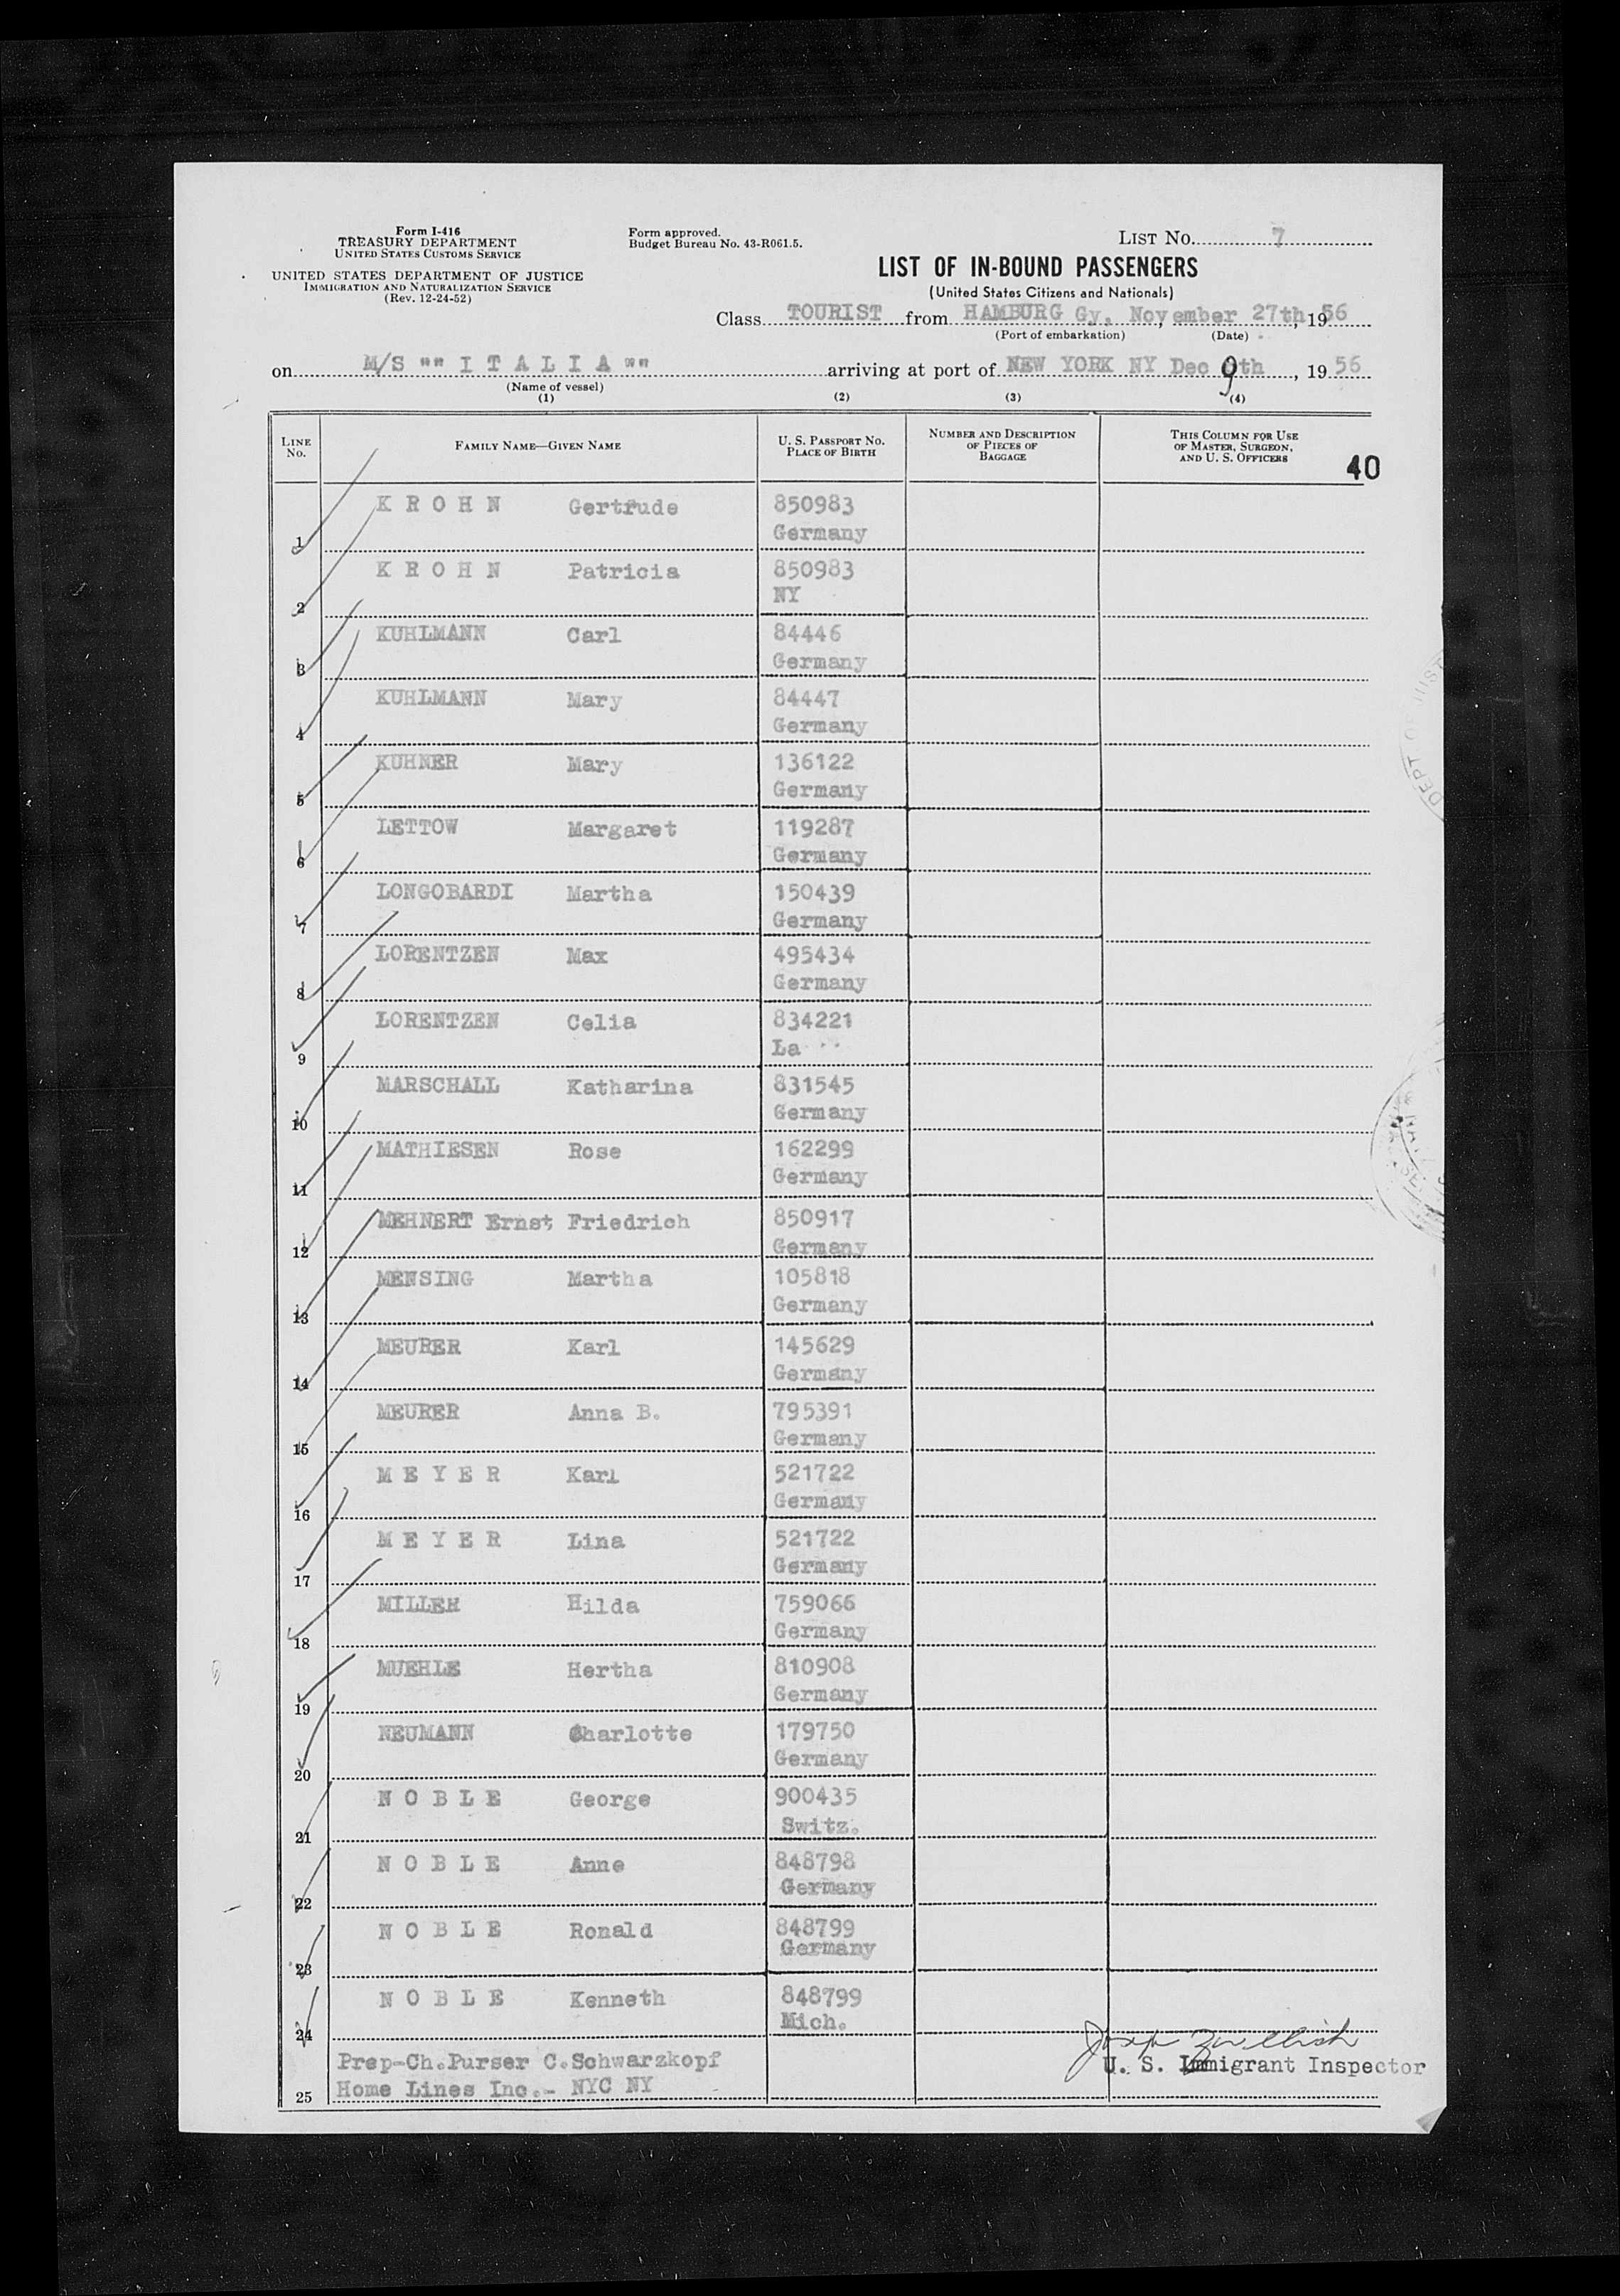 Form I-416
TREASURY DEPARTMENT
UNITED STATES CUSTOMS SERVICE
UNITED STATES DEPARTMENT OF JUSTICE
IMMIGRATION AND NATURALIZATION SERVICE
(Rev. 12-24-52)
Form approved.
Budget Bureau No. 43-R061.5.
LIST No. 7
LIST OF IN-BOUND PASSENGERS
(United States Citizens and Nationals)
Class TOURIST from HAMBURG Gy, November 27th, 1956
(Port of embarkation) (Date)
on M/S "" I T A L I A "" arriving at port of NEW YORK NY Dec 9th, 1956
(Name of vessel)
(1) (2) (3) (4)
LINE No. FAMILY NAME—GIVEN NAME U. S. PASSPORT No. PLACE OF BIRTH NUMBER AND DESCRIPTION OF PIECES OF BAGGAGE THIS COLUMN FOR USE OF MASTER, SURGEON, AND U. S. OFFICERS
40
1 K R O H N Gertrude 850983
Germany
2 K R O H N Patricia 850983
NY
3 KUHLMANN Carl 84446
Germany
4 KUHLMANN Mary 84447
Germany
5 KUHNER Mary 136122
Germany
6 LETTOW Margaret 119287
Germany
7 LONGOBARDI Martha 150439
Germany
8 LORENTZEN Max 495434
Germany
9 LORENTZEN Celia 834221
La
10 MARSCHALL Katharina 831545
Germany
11 MATHIESEN Rose 162299
Germany
12 MEHNERT Ernst Friedrich 850917
Germany
13 MENSING Martha 105818
Germany
14 MEURER Karl 145629
Germany
15 MEURER Anna B. 795391
Germany
16 M E Y E R Karl 521722
Germany
17 M E Y E R Lina 521722
Germany
18 MILLER Hilda 759066
Germany
19 MUEHLE Hertha 810908
Germany
20 NEUMANN Charlotte 179750
Germany
21 N O B L E George 900435
Switz.
22 N O B L E Anne 848798
Germany
23 N O B L E Ronald 848799
Germany
24 N O B L E Kenneth 848799
Mich.
Prep-Ch.Purser C.Schwarzkopf
U. S. Immigrant Inspector
25 Home Lines Inc.- NYC NY
DEPT OF JUST